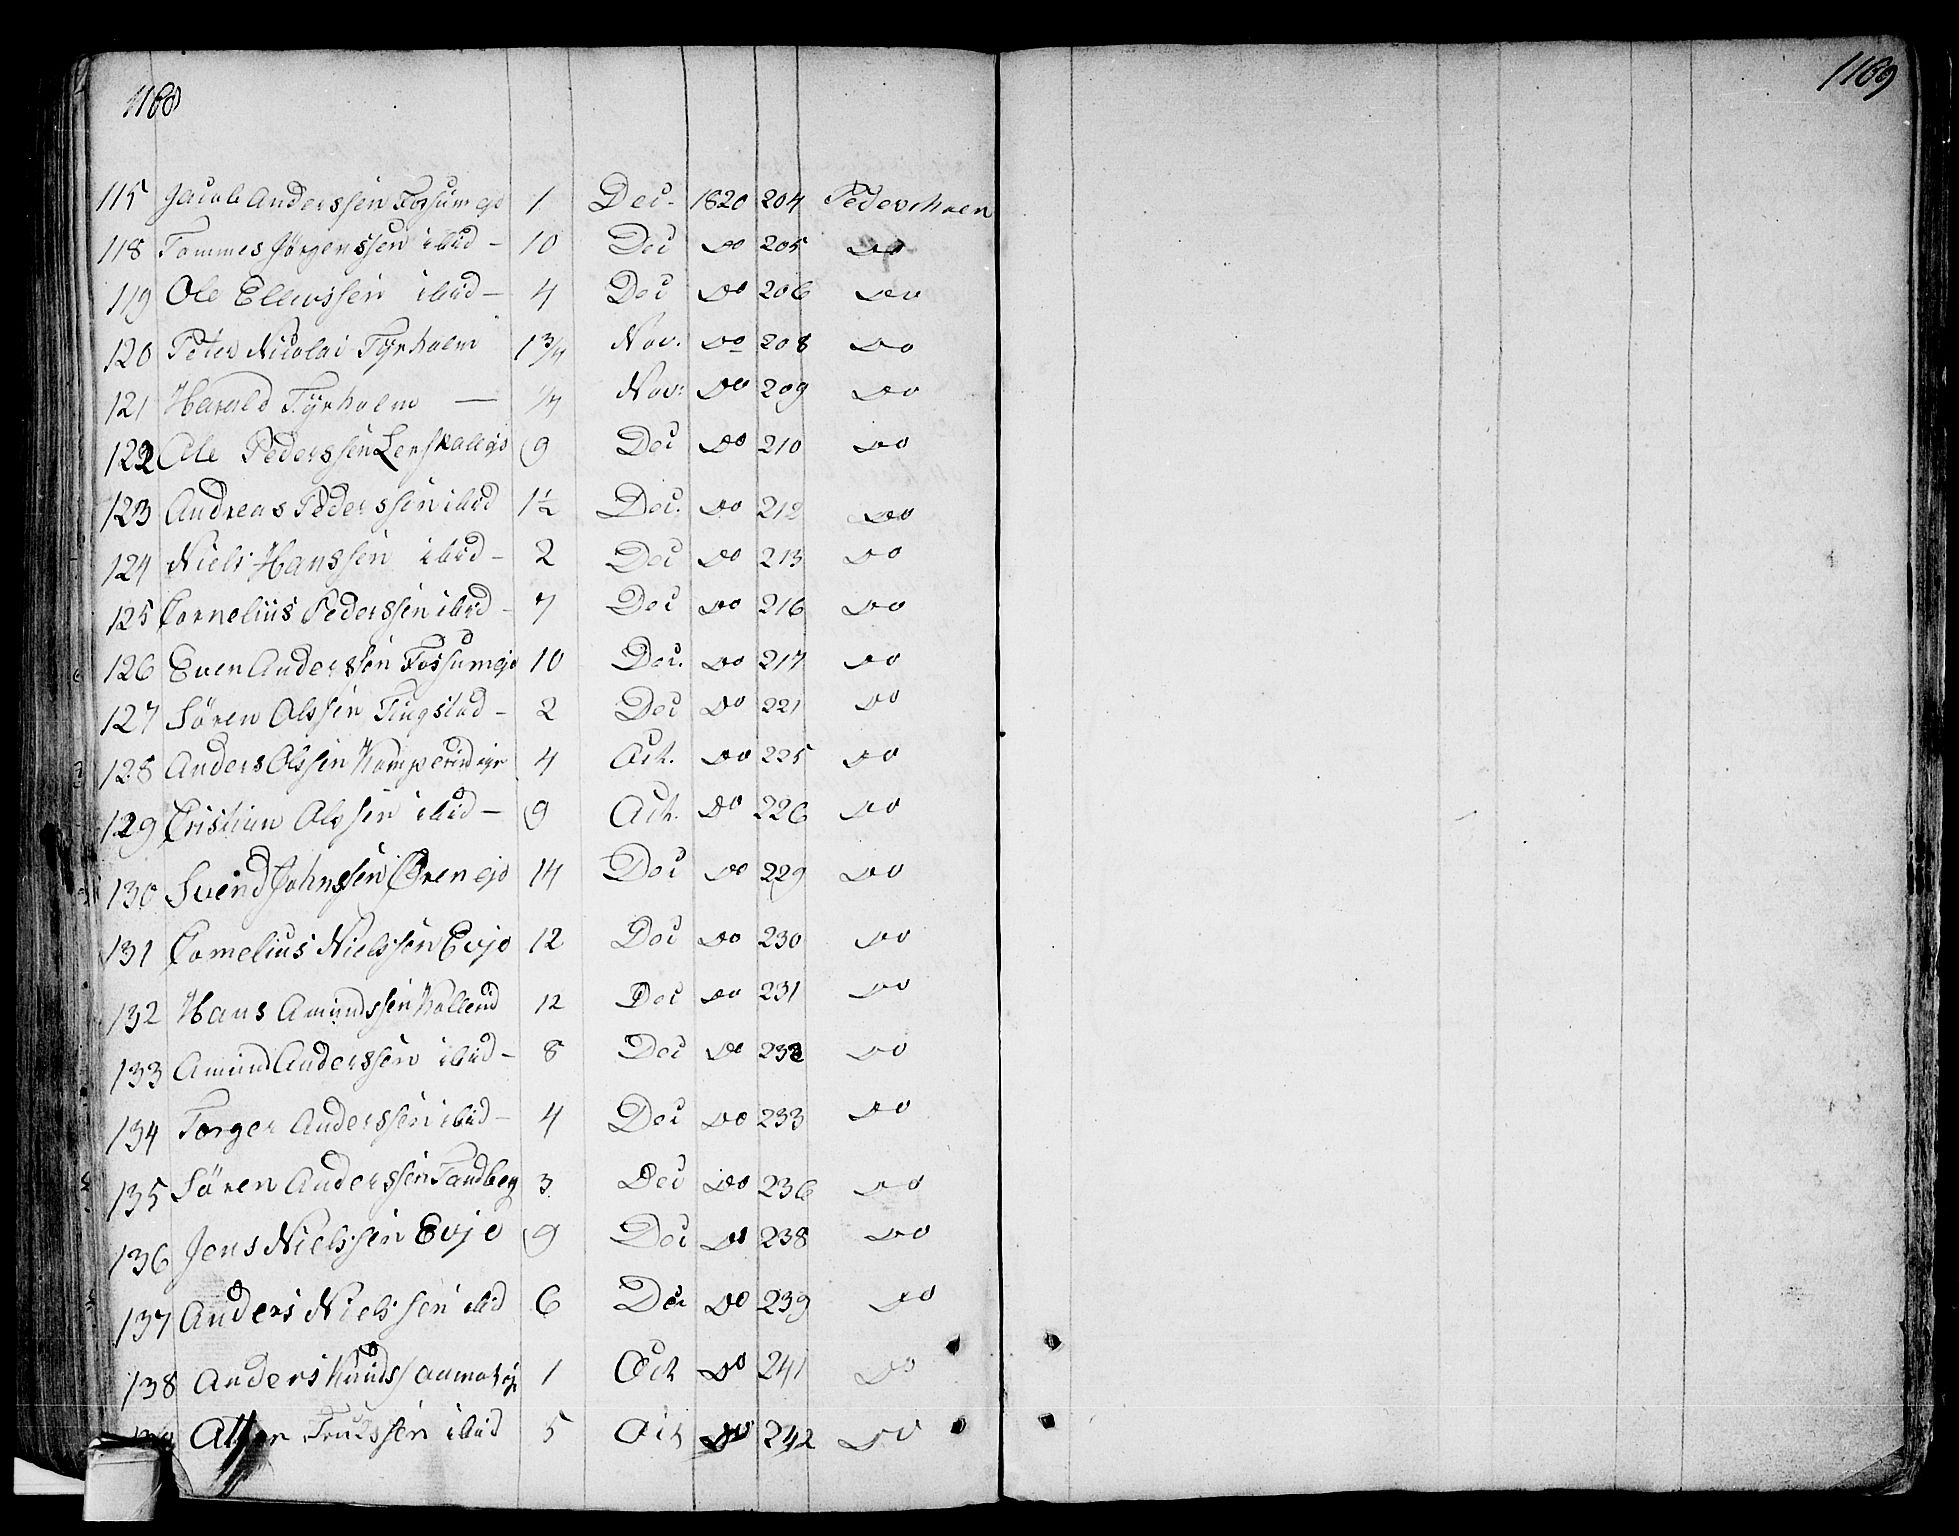 1168
1169
115 Jacob Anderssen Fossum ejd 1 Dec. 1820 204 Pederschaen
118 Tommes Jörgenssen ibid - 10 Dec Do 205 Do
119 Ole Ellevssen ibid - 4 Dec Do 206 Do
120 Peter Nicolai Tyrholm 1 3/4 Nov. Do 208 Do
121 Harald Tyrholm — 1/4 Nov: Do 209 Do
122 Ole Pederssen 9 Dec Do 210 Do
123 Andreas Pederssen ibid 1½ Dec. Do 212 Do
124 Niels Hanssen ibid - 2 Dec Do 213 Do
125 Cornelius Pederssen ibid - 7 Dec Do 216 Do
126 Even Anderssen Fossum ejd 10 Dec. Do 217 Do
127 Sören Olssen Tingstad - 2 Dec Do 221 Do
128 Anders Olssen 4 Oct. Do 225 Do
129 Cristian Olssen ibid - 9 Oct. Do 226 Do
130 Svend Johnssen Ören ejd 14 Dec Do 229 Do
131 Cornelius Nielssen Evje 12 Dec Do 230 Do
132 Hans Amundssen Kollerud 12 Dec Do 231 Do
133 Amund Anderssen ibid - 8 Dec Do 232 Do
134 Torger Anderssen ibid - 4 Dec Do 233 Do
135 Sören Anderssen Tandberg 3 Dec Do 236 Do
136 Jens Nielssen Evje 9 Dec Do 238 Do
137 Anders Nielssen ibid 6 Dec Do 239 Do
138 Anders 1 Oct Do 241 Do
ibid 5 Oct Do 242 Do